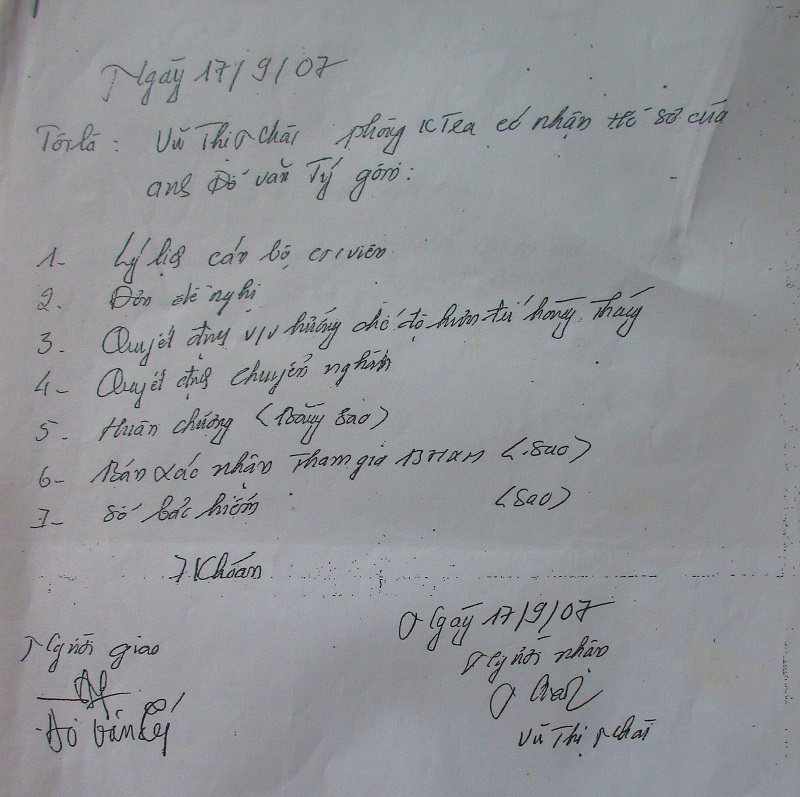 Ngày 17/9/07
Tôi là: Vũ Thị Nhài phòng KTra có nhận Hồ sơ của
anh Đỗ văn Tý gồm:
1- Lý lịch cán bộ CN viên
2. Đơn đề nghị
3. Quyết định v/v hưởng chế độ hưu trí hàng tháng
4- Quyết định chuyển nghành
5- Huân chương (Bảng sao)
6- Bản xác nhận tham gia BHXH (sao)
7- Sổ bảo hiểm (sao)
7 Khoản
Người giao
Đỗ Văn Tý
Ngày 17/9/07
Người nhận
Vũ Thị Nhài